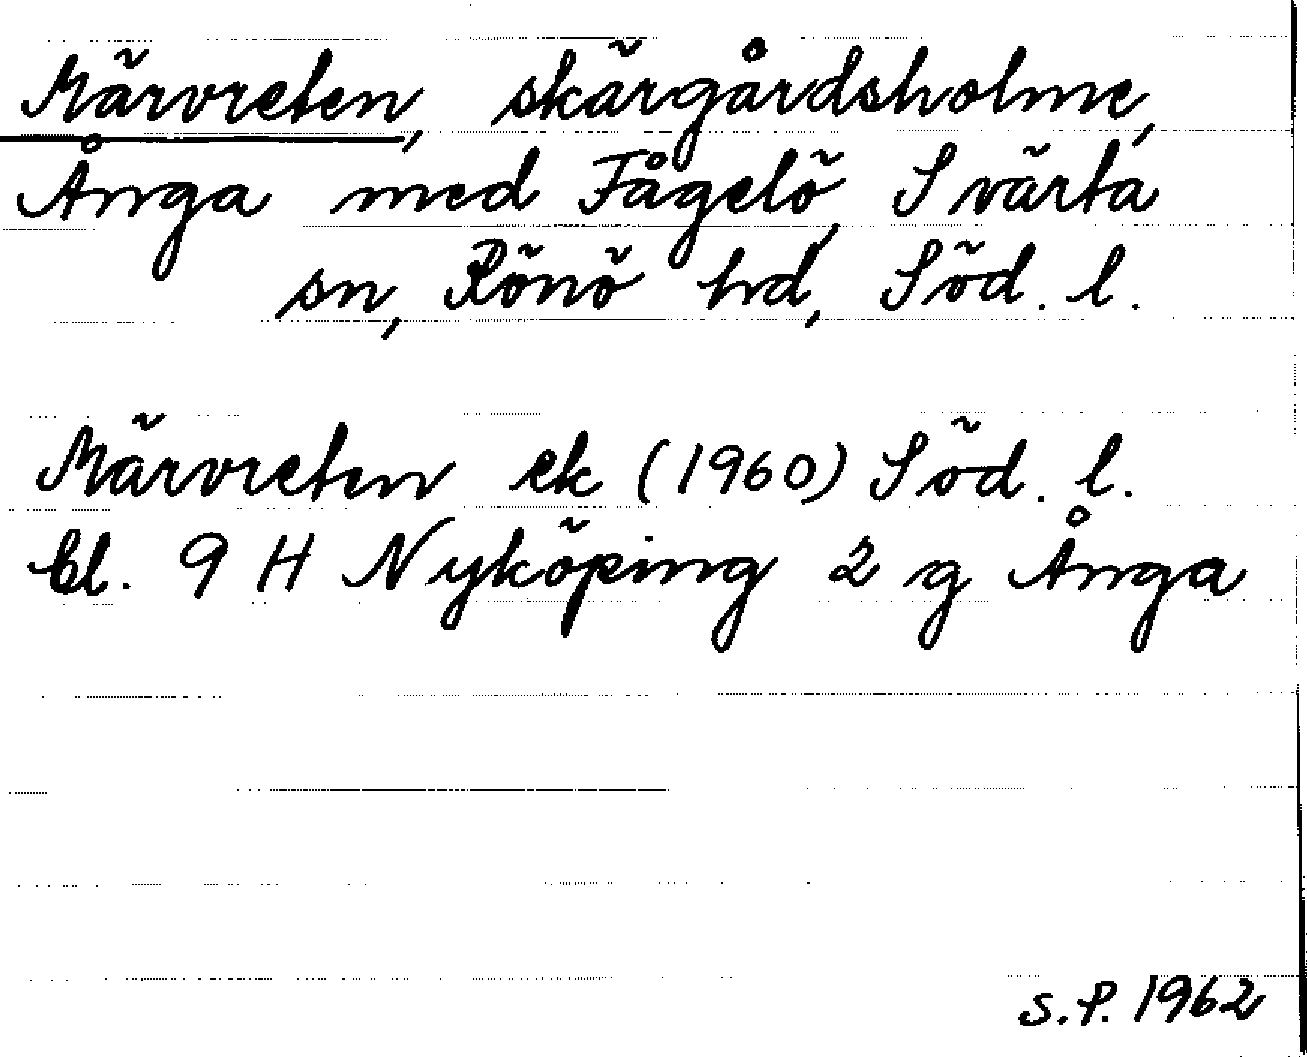 Märvreten, skärgårdsholme,
Ånga med Fågelö, Svärta
sn, Rönö hd, Söd. l.
Märvreten ek (1960) Söd. l.
bl. 9 H Nyköping 2 g Ånga
S.P. 1962